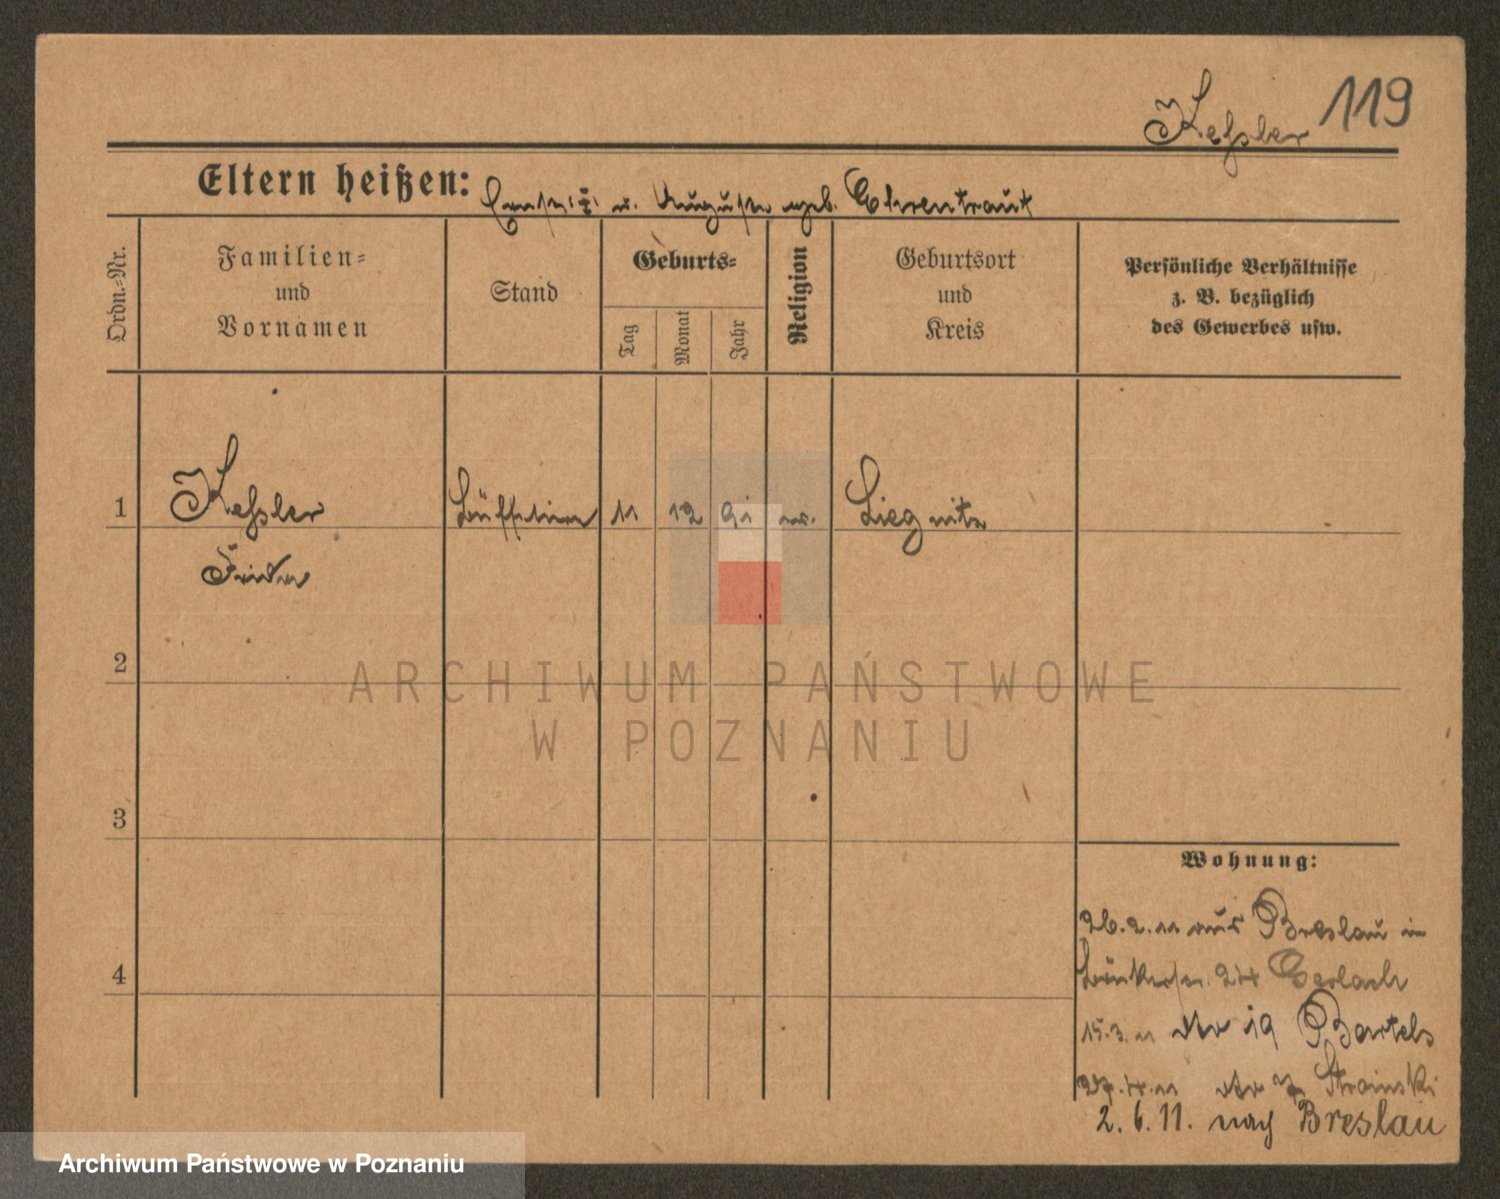 Keßler 119
Eltern heißen: Ernst u. Auguste geb. Ehrentraut
Ordn.-Nr.
Familien-
und
Vornamen
Stand
Geburts-
Tag
Monat
Jahr
Religion
Geburtsort
und
Kreis
Persönliche Verhältnisse
z. B. bezüglich
des Gewerbes usw.
1 Keßler 11 12 91 Liegnitz
Frida
2
ARCHIWUM PAŃSTWOWE
W POZNANIU
3
4
Wohnung:
26.2.11 aus Breslau in
Bäckerstr. 24 Gerlach
15.3.11 dto 19 Bartels
27.4.11 dto 7 Strainski
2.6.11. nach Breslau
Archiwum Państwowe w Poznaniu